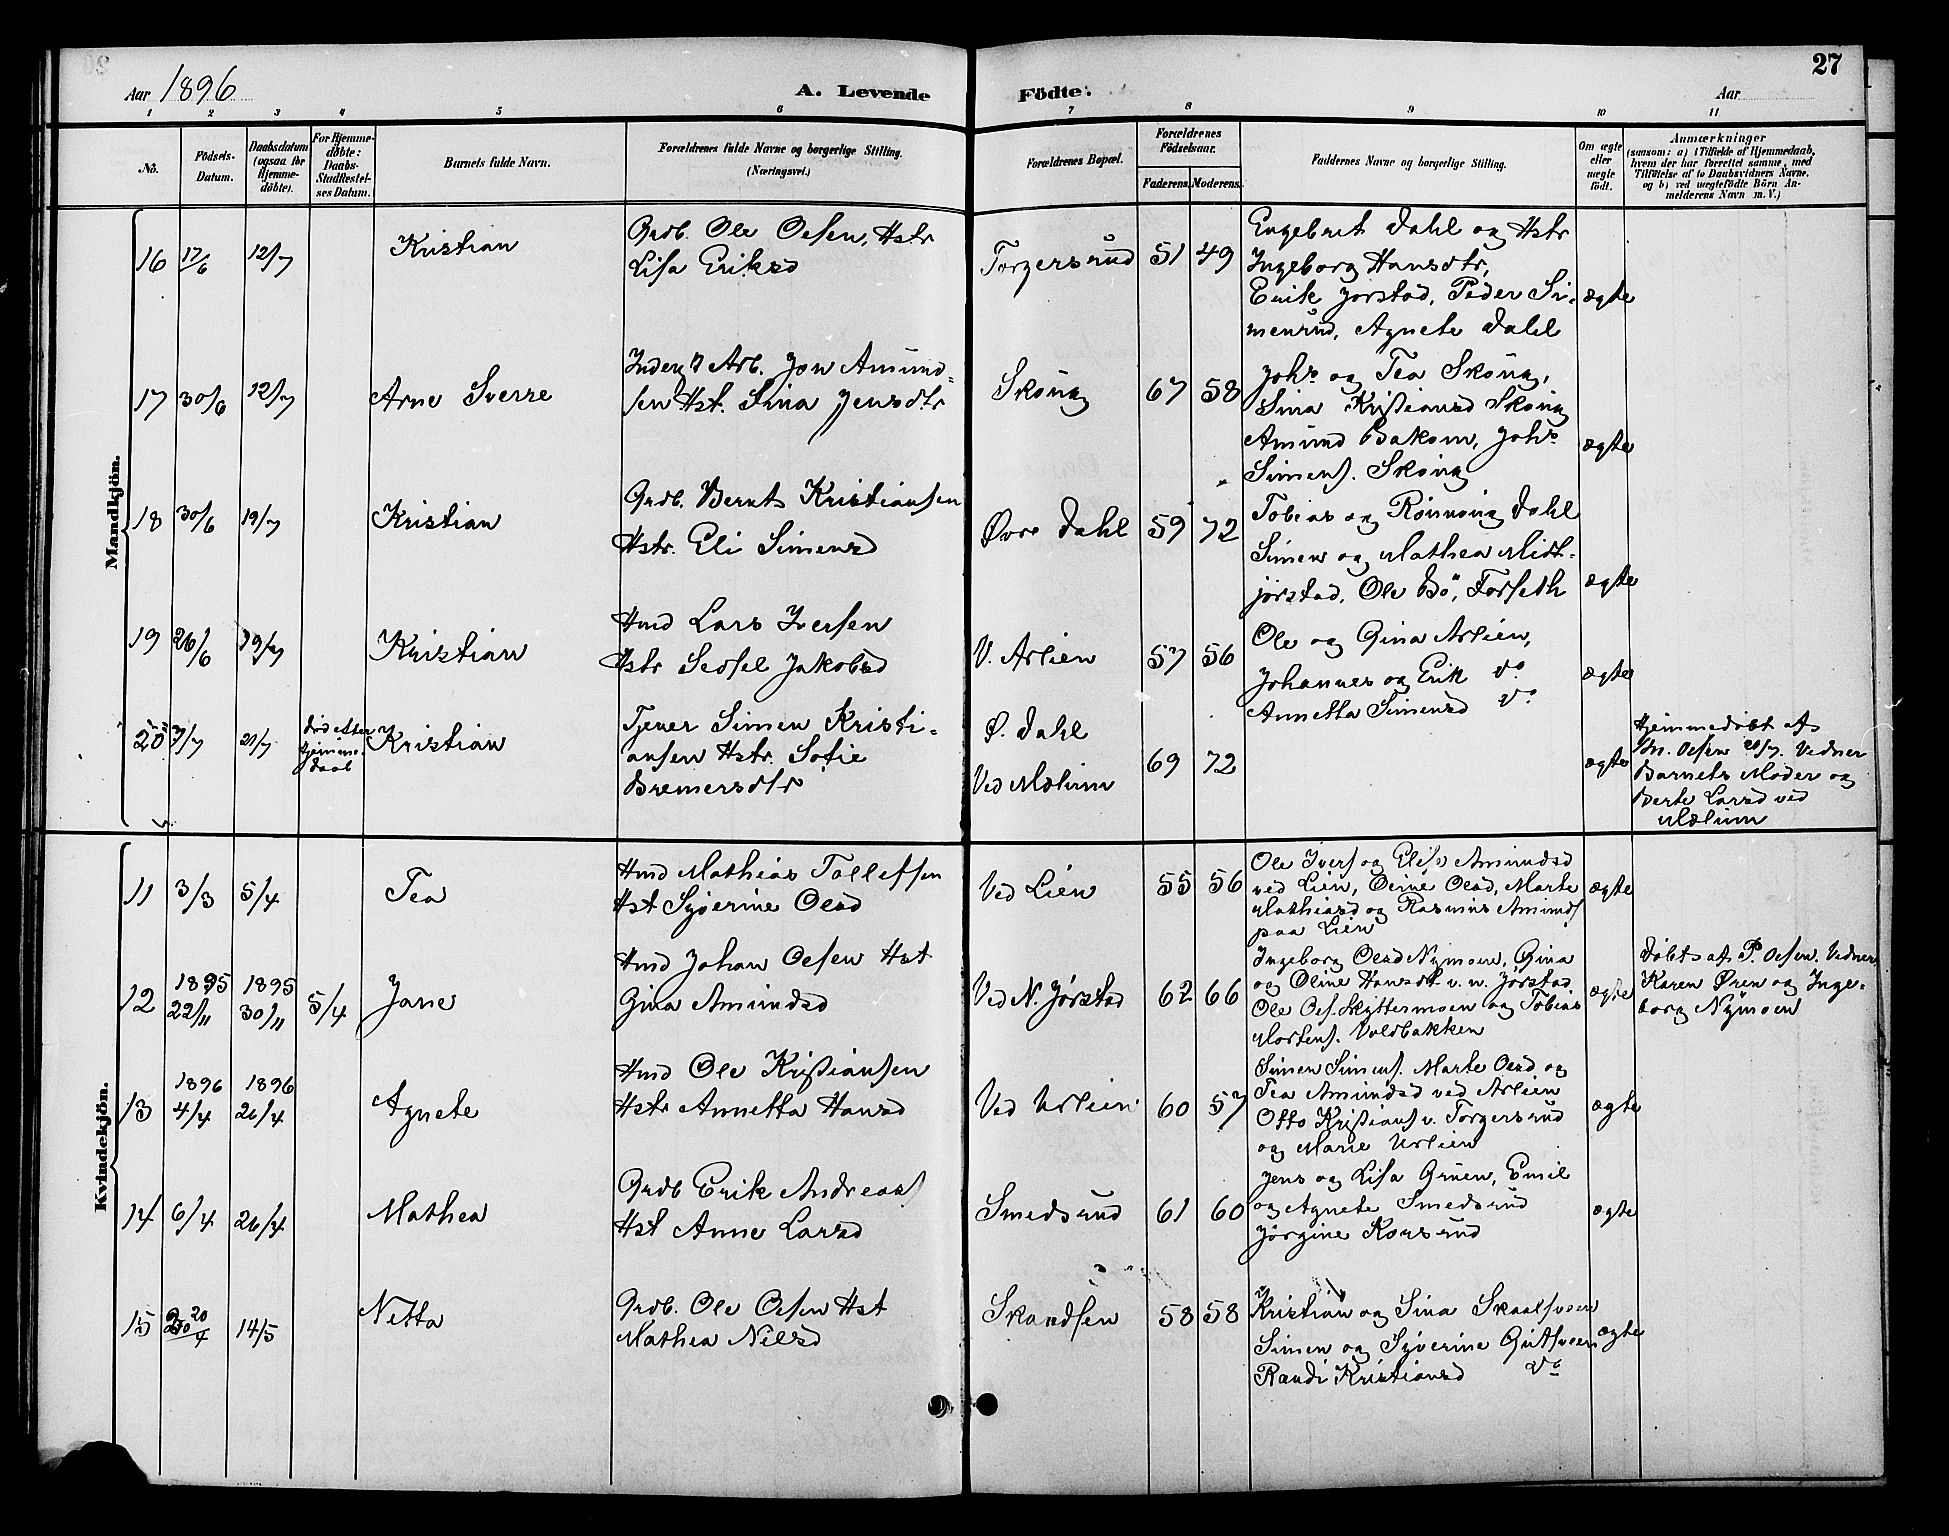 27
Aar 1896
A. Levende Födte.
Aar
1 2 3 4 5 6 7 8 9 10 11
No.
Födsels-Datum.
Daabsdatum (ogsaa for Hjemmedöbte).
For Hjemmedöbte: Daabs-Stadfæstelses Datum.
Barnets fulde Navn.
Forældrenes fulde Navne og borgerlige Stilling. (Næringsvei.)
Forældrenes Bopæl.
Forældrenes Födselsaar.
Faderens. Moderens.
Faddernes Navne og borgerlige Stilling.
Om ægte eller uægte födt.
Anmærkninger
(saasom: a) i Tilfælde af Hjemmedaab,
hvem der har forrettet samme, med
Tilföielse af to Daabsvidners Navne,
og b) ved uægtefödte Börn An-
melderens Navn m. V.)
Mandkjön.
16 17/6 12/7 Kristian
Grdb. Ole Olsen, Hstr
Lisa Eriksd
Torgersrud 51 49
Engebret Dahl og Hstr
Ingeborg Hansdtr,
Erik Jorstad, Peder Si-
mensrud, Agnete Dahl
ægte
17 30/6 12/7 Arne Sverre
Inderst Arb. Jon Amund-
sen Hst. Sina Jensdtr
Skoug 67 58
Johs og Tea Skoug,
Sina Kristiansd Skoug
Amund Bakom, Johs
Simens. Skoug
ægte
18 30/6 19/7 Kristian
Grdb. Bernts Kristiansen
Hstr. Eli Simensd
Øvre Dahl 59 72
Tobias og Rønnoug Dahl
Simen og Mathea Midt-
jørstad, Ole Bö, Forseth
ægte
19 26/6 19/7 Kristian
Hmd Lars Iversen
Hstr Sedsel Jakobsd
V. Arlien 57 56
Ole og Gina Arlien,
Johannes og Erik do
Annetta Simensd do
ægte
20 7/7 21/7 død etter hjemme-daab Kristian
Tjener Simen Kristi-
ansen Hstr. Sofie
Bremersdtr
Ø. Dahl
Ved Mælum 69 72
ægte
Hjemmedøbt af
Olsen 20/7. Vidner
Barnets Moder og
Berte Larsd ved
Mælum
Kvindekjön.
11 3/3 5/4 Tea
Hmd Mathias Tollefsen
Hst Syverine Olsd
Ved Lien 55 56
Ole Ivers og Elise Amundsd
ved Lien, Oline Olsd, Marte
Mathiasd og Rasmus Amunds
paa Lien
ægte
12 1895 22/11 1895 30/11 5/4 Jane
Hmd Johan Olsen Hst
Gina Amundsd
Ved N. Jørstad 62 66
Ingeborg Olsd Nymoen, Gina
og Oline Hansdt v. n. Jørstad
Ole Ols. Skyttermoen og Tobias
Mortens. Voldbakken
ægte
Døbts af P. Olsen. Vidner
Karen Øren og Inge-
borg Nymoen
13 1896 4/4 1896 26/4 Agnete
Hmd Ole Kristiansen
Hstr Annetta Hansd
Ved Urlien 60 57
Simen Simens. Marte Olsd og
Tea Amundsd ved Arlien
Otto Kristians v. Torgersrud
og Marie Urlien
ægte
14 6/4 26/4 Mathea
Grdb Erik Andreas
Hst Anne Larsd
Smedsrud 61 60
Jens og Lisa Gruen, Emil
og Agnete Smedsrud
Jørgine Korsrud
ægte
15 20/4 14/5 Netta
Grdb. Ole Olsen Hst
Mathea Nilsd
Skandsen 58 58
Kristian og Sina Skaalsveen
Simen og Syverine Gutsveen
Randi Kristiansd do
ægte